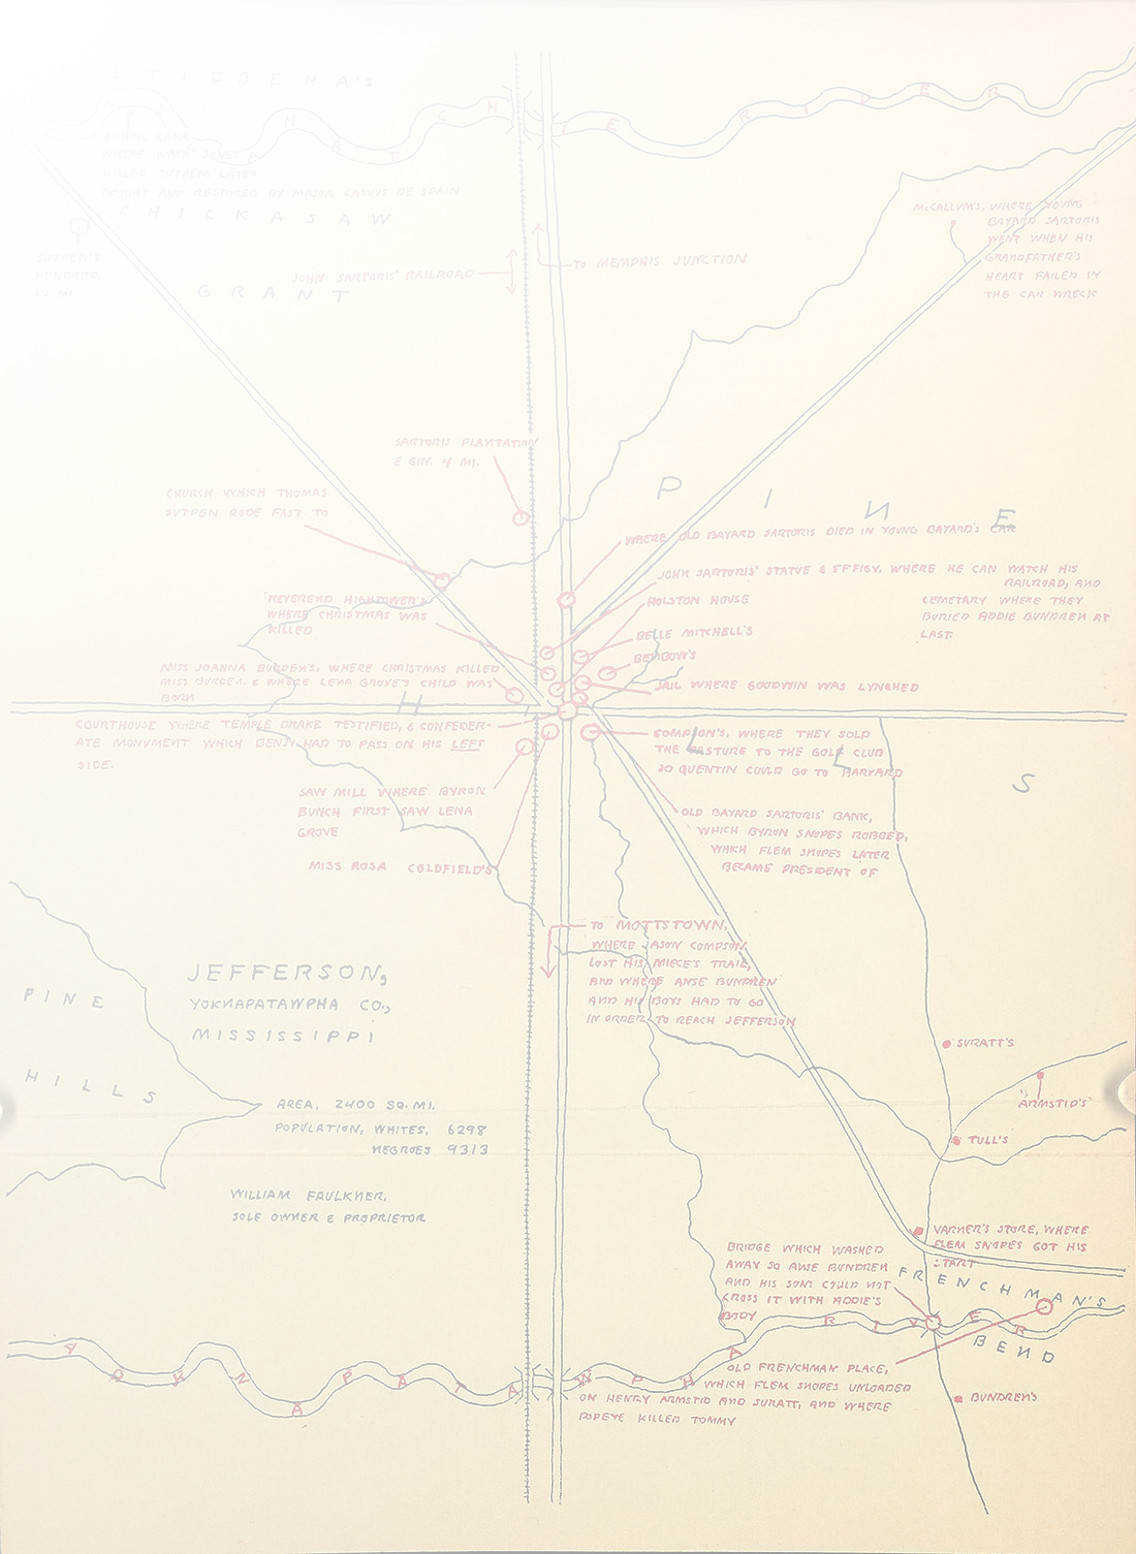 CHICKASAW
GRANT
TALLAHATCHIE RIVER
WHERE WASH JONES
KILLED SUTPEN. LATER
BOUGHT AND RESTORED BY MAJOR CASSIUS DE SPAIN
SUTPEN'S
HUNDRED,
12 MI.
JOHN SARTORIS' RAILROAD
TO MEMPHIS JUNCTION
McCALLUM'S, WHERE YOUNG
BAYARD SARTORIS
WENT WHEN HIS
GRANDFATHER'S
HEART FAILED IN
THE CAR WRECK
SARTORIS PLANTATION
& GIN. 4 MI.
CHURCH WHICH THOMAS
SUTPEN RODE FAST TO
PINE
HILLS
WHERE OLD BAYARD SARTORIS DIED IN YOUNG BAYARD'S CAR
JOHN SARTORIS' STATUE & EFFIGY, WHERE HE CAN WATCH HIS
RAILROAD, AND
CEMETARY WHERE THEY
BURIED ADDIE BUNDREN AT
LAST.
HOLSTON HOUSE
BELLE MITCHELL'S
BENBOW'S
JAIL WHERE GOODWIN WAS LYNCHED
REVEREND HIGHTOWER'S
WHERE CHRISTMAS WAS
KILLED
MISS JOANNA BURDEN'S, WHERE CHRISTMAS KILLED
MISS BURDEN, & WHERE LENA GROVE'S CHILD WAS
BORN
COURTHOUSE WHERE TEMPLE DRAKE TESTIFIED, & CONFEDER-
ATE MONUMENT WHICH BENJY HAD TO PASS ON HIS LEFT
SIDE.
COMPSON'S, WHERE THEY SOLD
THE PASTURE TO THE GOLF CLUB
SO QUENTIN COULD GO TO HARVARD
SAW MILL WHERE BYRON
BUNCH FIRST SAW LENA
GROVE
MISS ROSA COLDFIELD'S
OLD BAYARD SARTORIS' BANK,
WHICH BYRON SNOPES ROBBED,
WHICH FLEM SNOPES LATER
BECAME PRESIDENT OF
TO MOTTSTOWN,
WHERE JASON COMPSON
LOST HIS NIECE'S TRAIL,
AND WHERE ANSE BUNDREN
AND HIS BOYS HAD TO GO
IN ORDER TO REACH JEFFERSON
PINE
HILLS
JEFFERSON,
YOKNAPATAWPHA CO.,
MISSISSIPPI
AREA, 2400 SQ. MI.
POPULATION, WHITES, 6298
NEGROES 9313
WILLIAM FAULKNER,
SOLE OWNER & PROPRIETOR
SURATT'S
ARMSTID'S
TULL'S
VARNER'S STORE, WHERE
FLEM SNOPES GOT HIS
START
BRIDGE WHICH WASHED
AWAY SO ANSE BUNDREN
AND HIS SONS COULD NOT
CROSS IT WITH ADDIE'S
BODY
FRENCHMAN'S
BEND
YOKNAPATAWPHA RIVER
OLD FRENCHMAN PLACE,
WHICH FLEM SNOPES UNLOADED
ON HENRY ARMSTID AND SURATT, AND WHERE
POPEYE KILLED TOMMY
BUNDREN'S